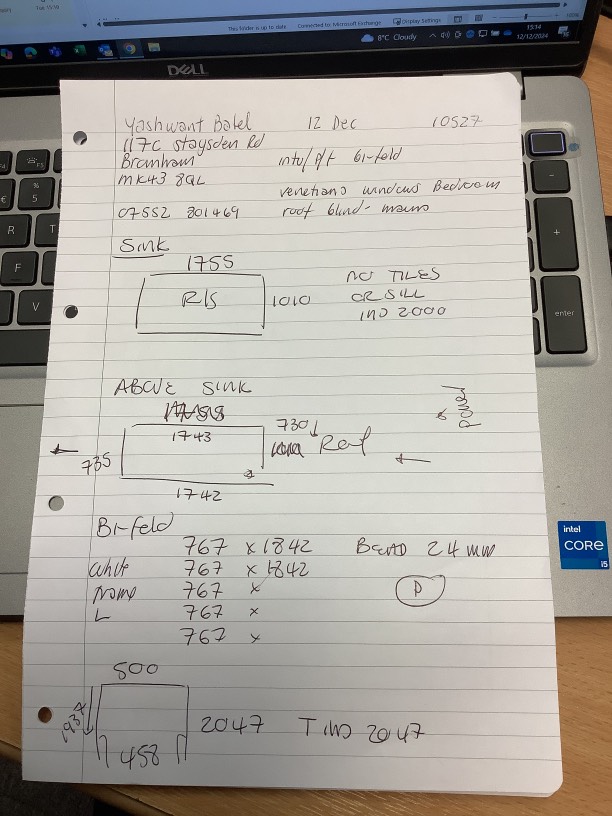 This folder is up to date Connected to: Microsoft Exchange Display Settings
8°C Cloudy
15:14
12/12/2024
DELL
Yashwant Batel 12 Dec 10527
117c staysden Rd
Bromham intu/p/f bi-fold
MK43 8QL
venetians windows Bedroom
07552 801469 roof blind-
SINK
1755
RIS 1010
NO TILES
OR SILL
2000
ABOVE SINK
1743
730
735
1742
Bi-fold
767 x 1842 BEAD 24 mm
White 767 x 1842
767 x P
L 767 x
767 x
500
1937
2047 2047
458
%
5
R
T
F
V
-
+
enter
intel
CORE
i5